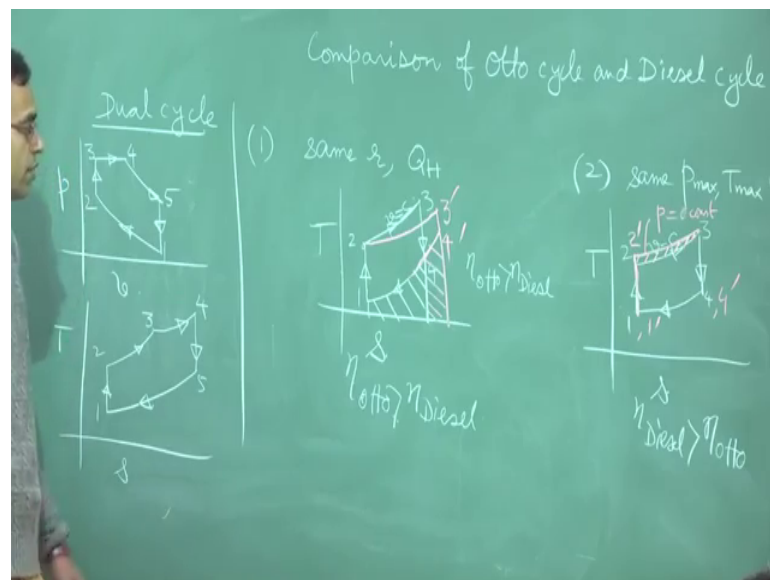 Comparison of Otto cycle and Diesel cycle
Dual cycle
p
3 4
2 5
1
v
T
4
3
2
5
1
s
(1) same r, Q_H
T
3 3'
2 v=c
4 4'
1
s
η_Otto > η_Diesel
η_Otto > η_Diesel
(2) same p_max, T_max
p = const
T
2' 3
2 v=c
1, 1' 4, 4'
s
η_Diesel > η_Otto